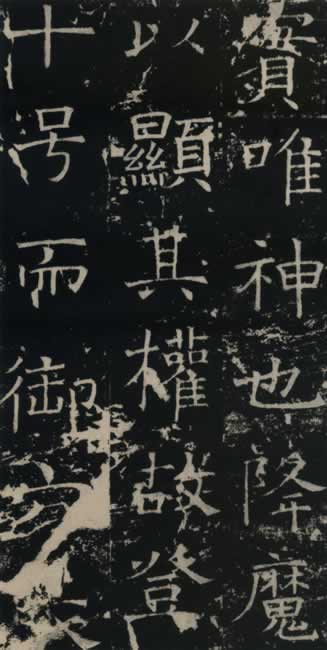 實唯神也降魔
以顯其權故登
十号而御